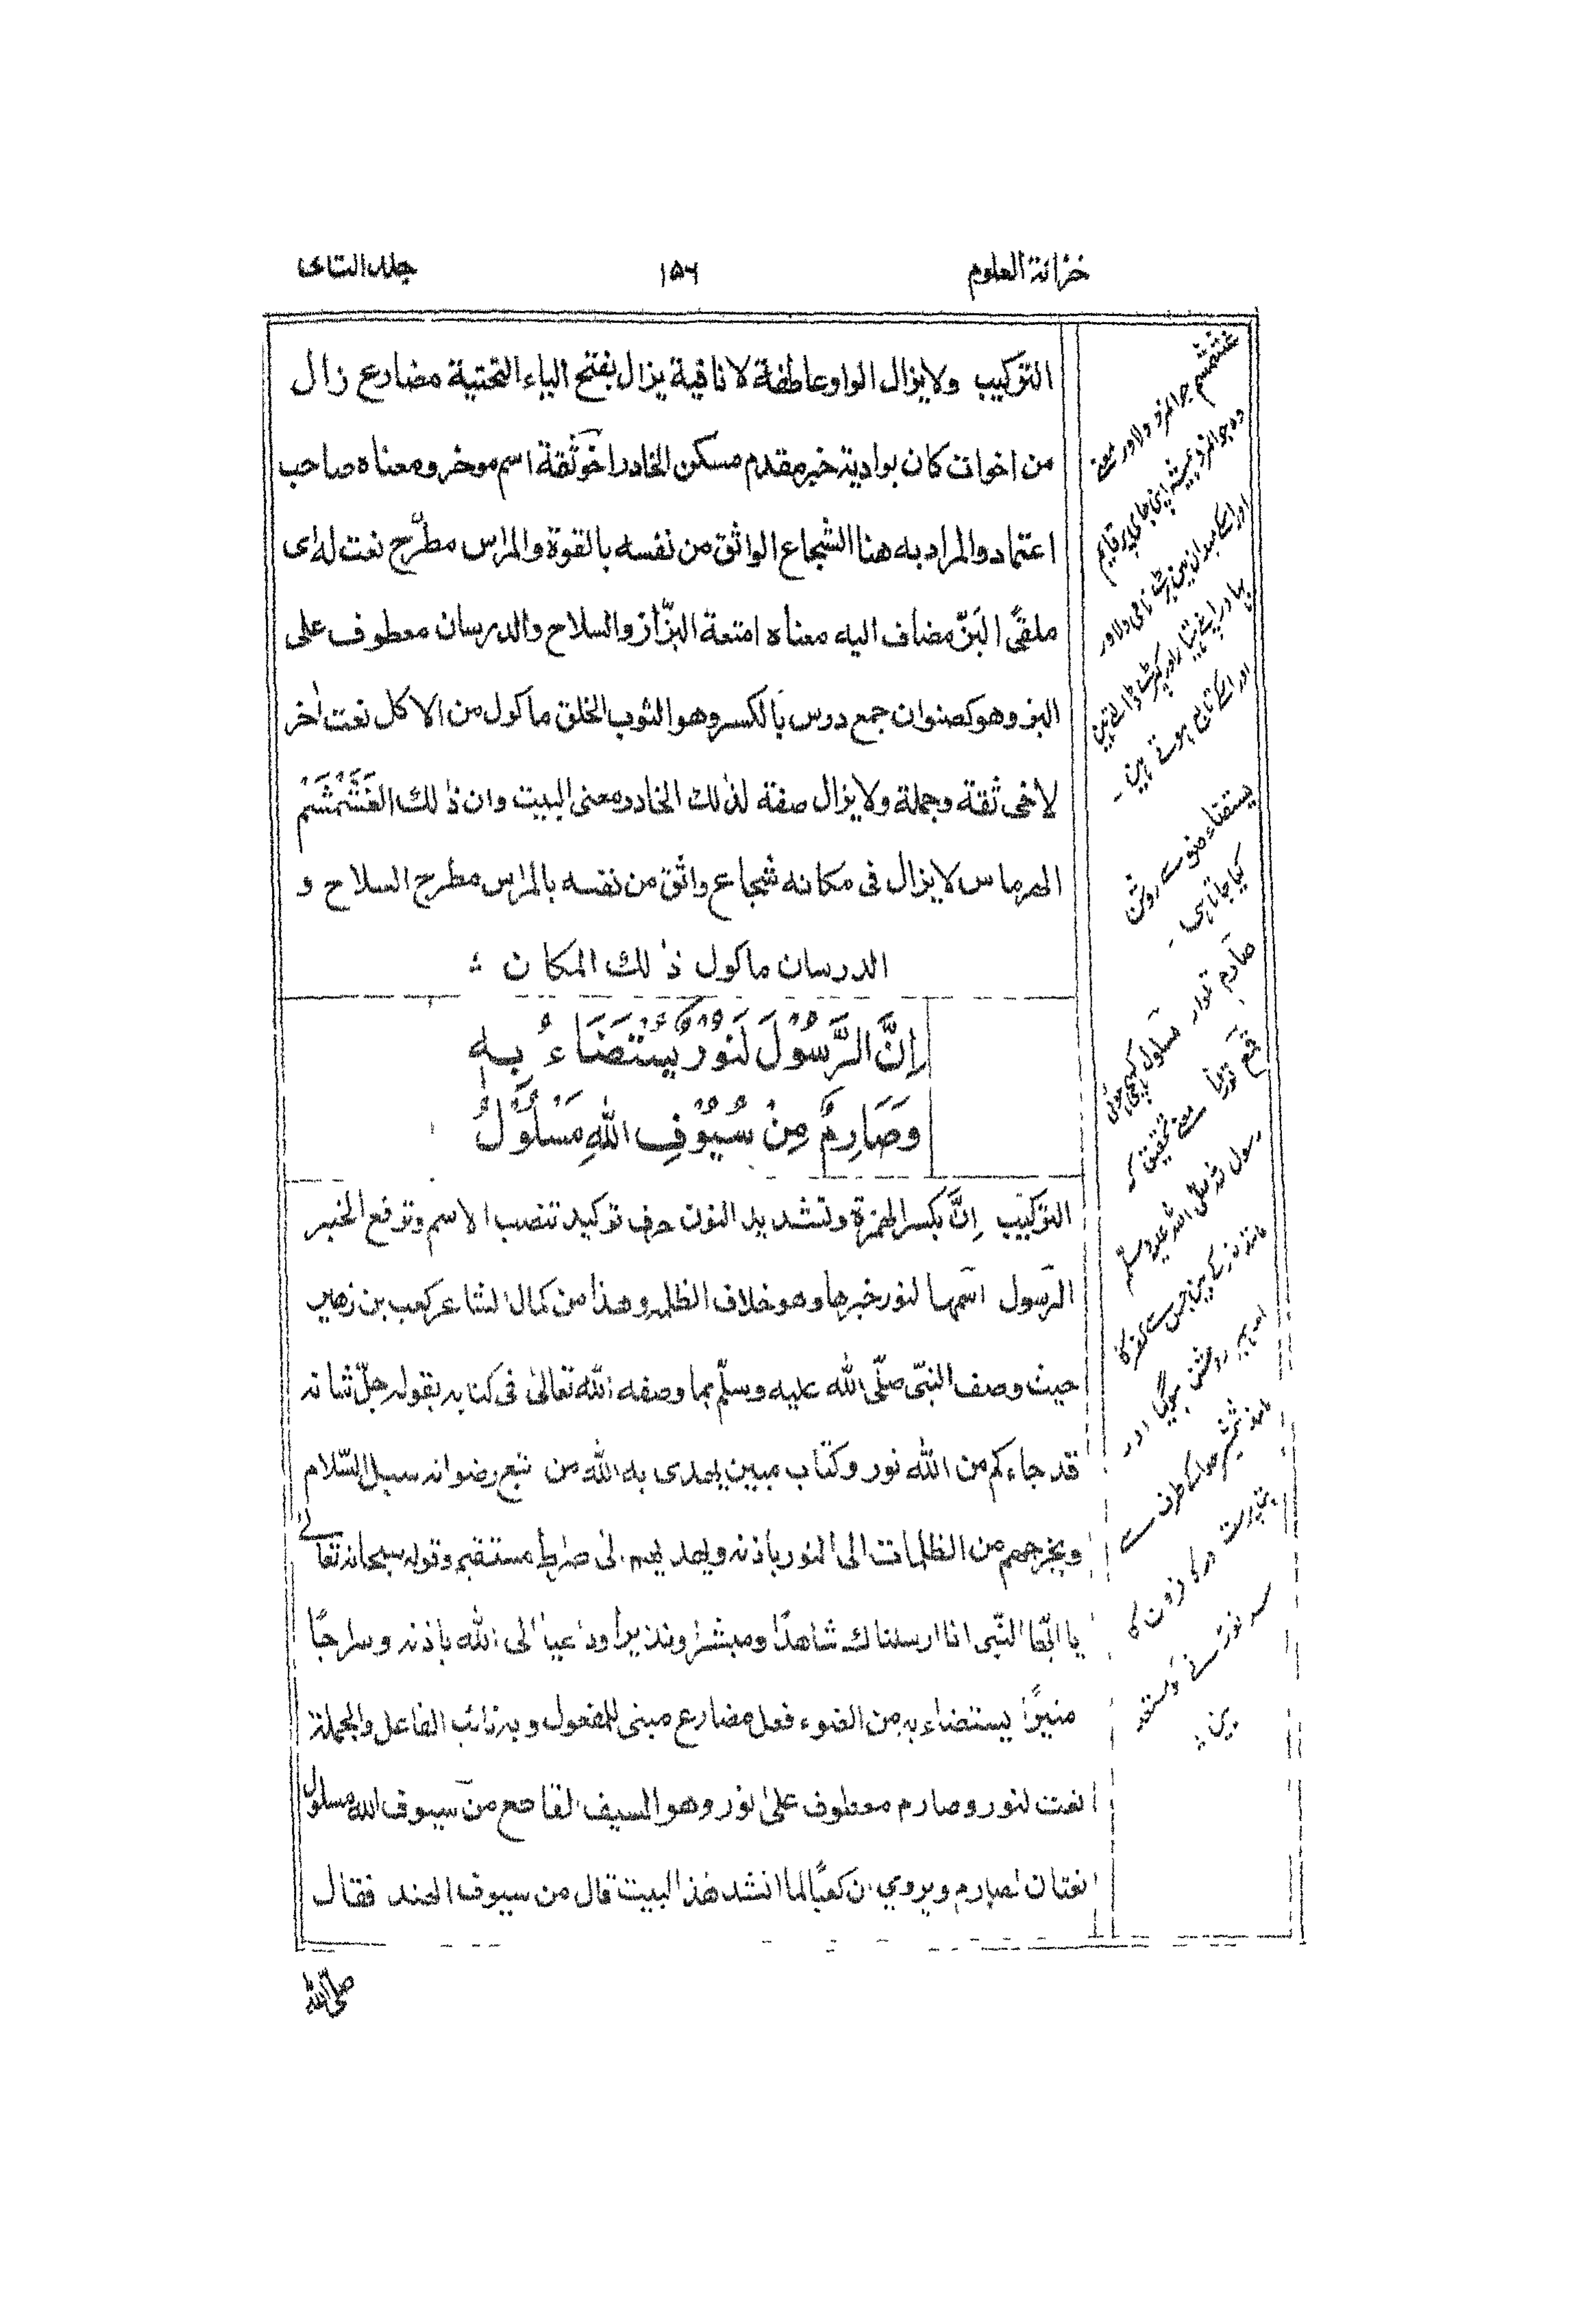 خزانة العلوم ١٥٦ جلد الثانى
التركيب ولايزال الواو عاطفة لا نافية يزال بفتح الياء التحتية مضارع زال
من اخوات كان بواديه خبر مقدم مسكن الخادر اخو ثقة اسم موخر ومعناه صاحب
اعتماد والمراد به هنا الشجاع الواثق من نفسه بالقوة والمراس مطرّح نعت له اى
ملقًى البَزّ مضاف اليه معناه امتعة البزّاز والسلاح والدرسان معطوف على
البز وهو كصنوان جمع درس بالكسر وهو الثوب الخلق ماكول من الاكل نعت اٰخر
لاخى ثقة وجملة ولايزال صفة لذٰلك الخادر ومعنى البيت وان ذٰلك الغَشَمْشَمْ
الهرماس لايزال فى مكانه شجاع واثق من نفسه بالمراس مطرح السلاح و
الدرسان ماكول ذٰلك المكان
اِنَّ الرَّسُوْلَ لَنُوْرٌ يُسْتَضَاءُ بِهٖ
وَصَارِمٌ مِنْ سُيُوْفِ اللهِ مَسْلُوْلُ
التركيب اِنَّ بكسر الهمزة وتشديد النون حرف توكيد تنصب الاسم وترفع الخبر
الرسول اسمها لنور خبرها وهو خلاف الظلمة وهذا من كمال الشاعر كعب بن زهير
حيث وصف النبىّ صلّى الله عليه وسلّم بما وصفه الله تعالىٰ فى كتابه بقوله جلّ شانه
قد جاءكم من الله نور وكتاب مبين يهدى به الله من تبع رضوانه سبل السّلام
ويخرجهم من الظلمات الى النور باذنه ويهديهم الى صراط مستقيم وقوله سبحانه تعالىٰ
يا ايّها النّبى انا ارسلناك شاهدًا ومبشرا ونذيرا وداعيا الى الله باذنه وسراجًا
منيرًا يستضاء به من الضوء فعل مضارع مبنى للمفعول وبه نائب الفاعل والجملة
نعت لنور وصارم معطوف على نور وهو السيف القاطع من سيوف الله مسلول
نعتان لصارم ويروي ان كعبًا لما انشد هٰذا البيت قال من سيوف الهند فقال
صلى الله
غشمشم جوانمرد ولاور یعنے
وہ جوانمرد ہمیشہ اپنی جای پر قایم
اور اسکے میدان مین بڑے نامی دلاور
بہادر اپنے ہتیار اور کپڑے ڈالدیتے ہین
اور اسکے تابع ہوتے ہین ۔
یستضاء ضو سے روشن
کیا جاتا ہی ۔
صارم تلوار مسلول کھینچی ہوئی
قمع توڑنا یعنے تحقیق کہ
رسول اللہ صلی اللہ علیہ وسلم
مانند نور کے ہین جس سے کفر کا
اندہیر روشن ہوگیا اور
مانند شمشیر خدا کے طرف سے
بت پرست اور کافرون کا
سر توڑنے
ہین